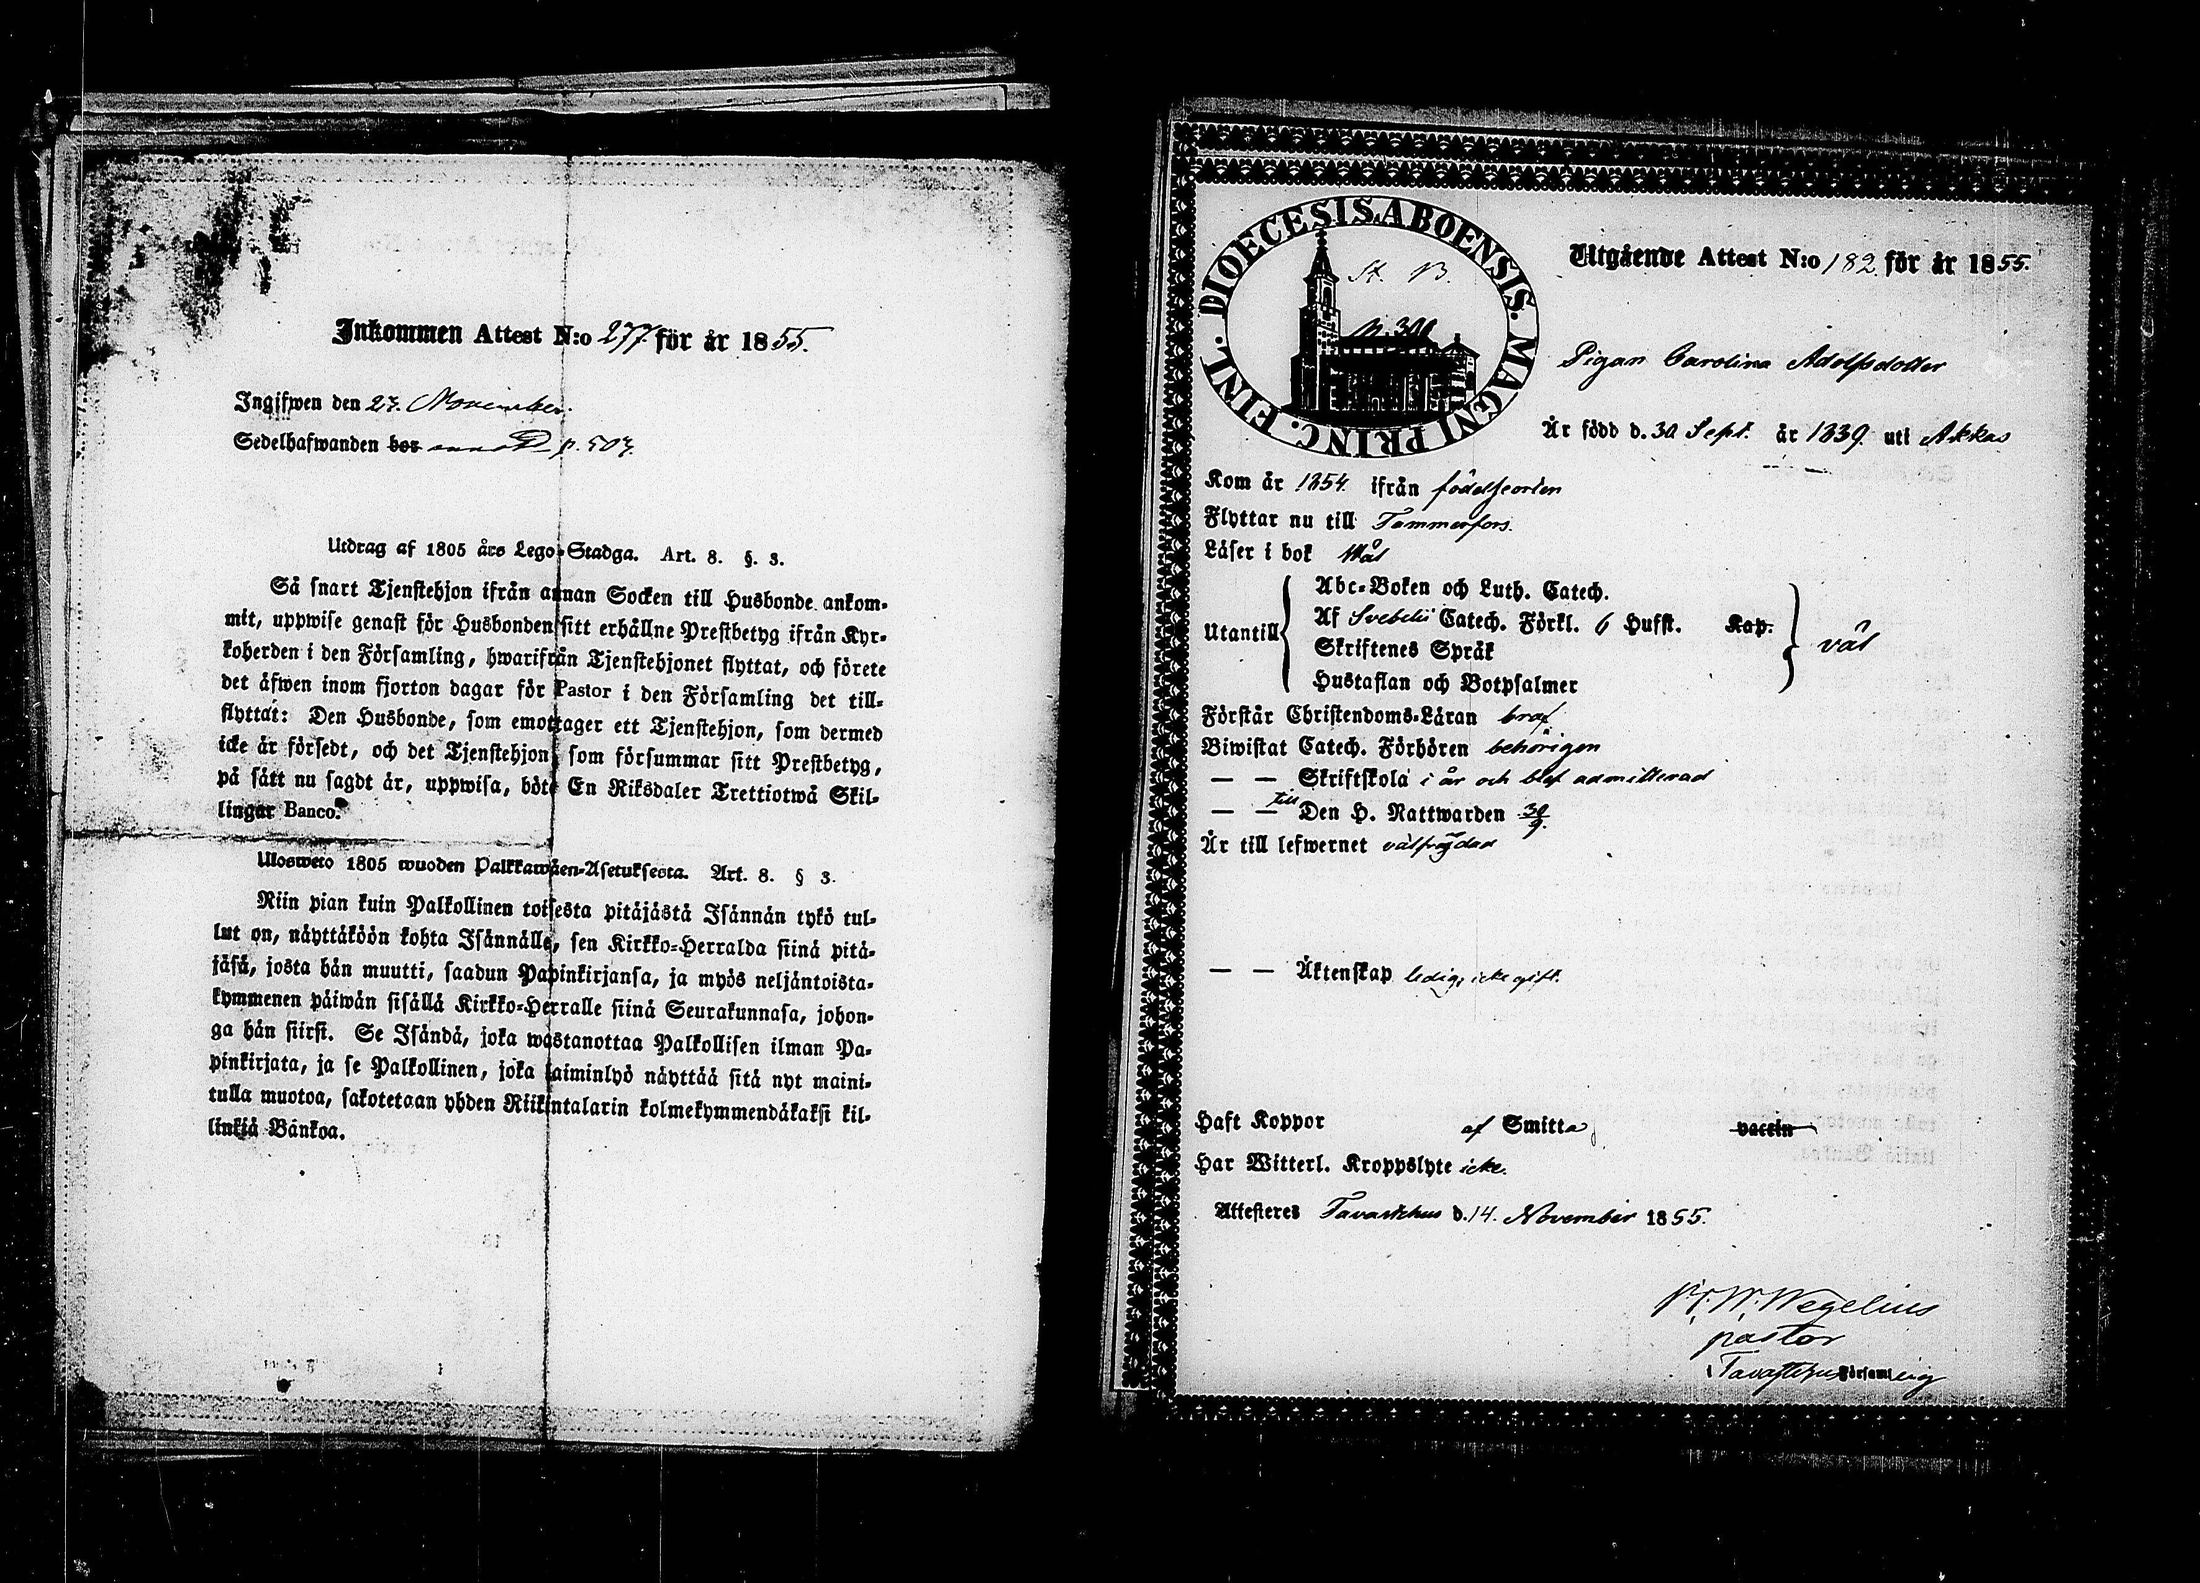 Inkommen Attest N:o 277 för år 1855.
Ingifwen den 27. November.
Sedelhafwanden bor p. 507.
Utdrag af 1805 års Lego-Stadga. Art. 8. §. 3.
Så snart Tjenstehjon ifrån annan Socken till Husbonde ankom-
mit, uppwise genast för Husbonden sitt erhållne Prestbetyg ifrån Kyr-
koherden i den Församling, hwarifrån Tjenstehjonet flyttat, och förete
det äfwen inom fjorton dagar för Pastor i den Församling det till-
flyttat: Den Husbonde, som emottager ett Tjenstehjon, som dermed
icke är försedt, och det Tjenstehjon som försummar sitt Prestbetyg,
på sätt nu sagdt är, uppwisa, böte En Riksdaler Trettiotwå Skil-
lingar Banco.
Ulosweto 1805 wuoden Palkkawäen-Asetuksesta. Art. 8. § 3.
Niin pian kuin Palkollinen toisesta pitäjästä Isännän tykö tul-
lut on, näyttäköön kohta Isännälle, sen Kirkko-Herralda siinä pitä-
jäsä, josta hän muutti, saadun Papinkirjansa, ja myös neljäntoista-
kymmenen päiwän sisällä Kirkko-Herralle siinä Seurakunnasa, johon-
ga hän siirsi. Se Isändä, joka wastanottaa Palkollisen ilman Pa-
pinkirjata, ja se Palkollinen, joka laiminlyö näyttää sitä nyt maini-
tulla muotoa, sakotetaan yhden Riikintalarin kolmekymmendäkaksi kil-
linkiä Bankoa.
DIOECESIS. ABOENSIS. MAGNI PRINC. FINL.
St. B.
n. 301
Utgående Attest N:o 182 för år 1855.
Pigan Carolina Adolfsdotter
Är född d. 30 Sept. år 1839. uti Akkas
Kom år 1854. ifrån födelseorten
Flyttar nu till Tammerfors.
Läser i bok Wäl
Utantill
Abc-Boken och Luth. Catech.
Af Svebelii Catech. Förkl. 6 Hufst. Kap.
Skriftenes Språk
Hustaflan och Botpsalmer
väl
Förstår Christendoms-Läran braf
Biwistat Catech. Förhören behörigen
— — Skriftskola i år och blef admitterad
— — till Den H. Nattwarden 30/9.
Är till lefwernet välfrägdad
— — Äktenskap ledig, icke gift.
Haft Koppor af Smitta vaccin
Har Witterl. Kroppslyte icke.
Attesteres Tavastehus d. 14. November 1855.
W. Wegelius
pastor
i Tavastehus Församling